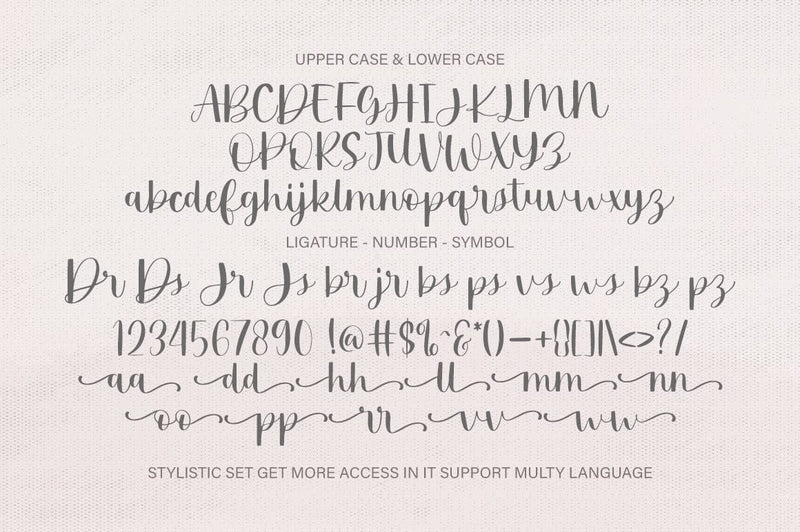 UPPER CASE & LOWER CASE
ABCDEFGHIJKLMN
OPQRSTUVWXYZ
abcdefghijklmnopqrstuvwxyz
LIGATURE - NUMBER - SYMBOL
Dr Ds Jr Js br jr bs ps vs ws bz pz
1234567890 !@#$%^&*()-+{}[]|\<>?/
aa dd hh ll mm nn
oo pp rr vv ww
STYLISTIC SET GET MORE ACCESS IN IT SUPPORT MULTY LANGUAGE